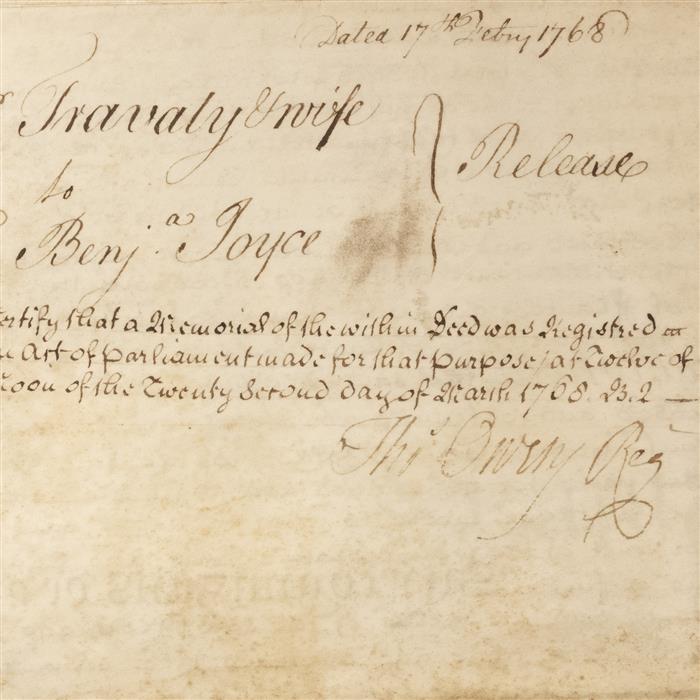 Dated 17th Febry 1768
Travaly & wife
to
Release
Benja. Joyce
ertify that a Memorial of the within Deed was Registred
Act of Parliament made for that purpose, at Twelve of
Noon of the Twenty Second Day of March 1768. B. 2 —
Thos. Owen Reg